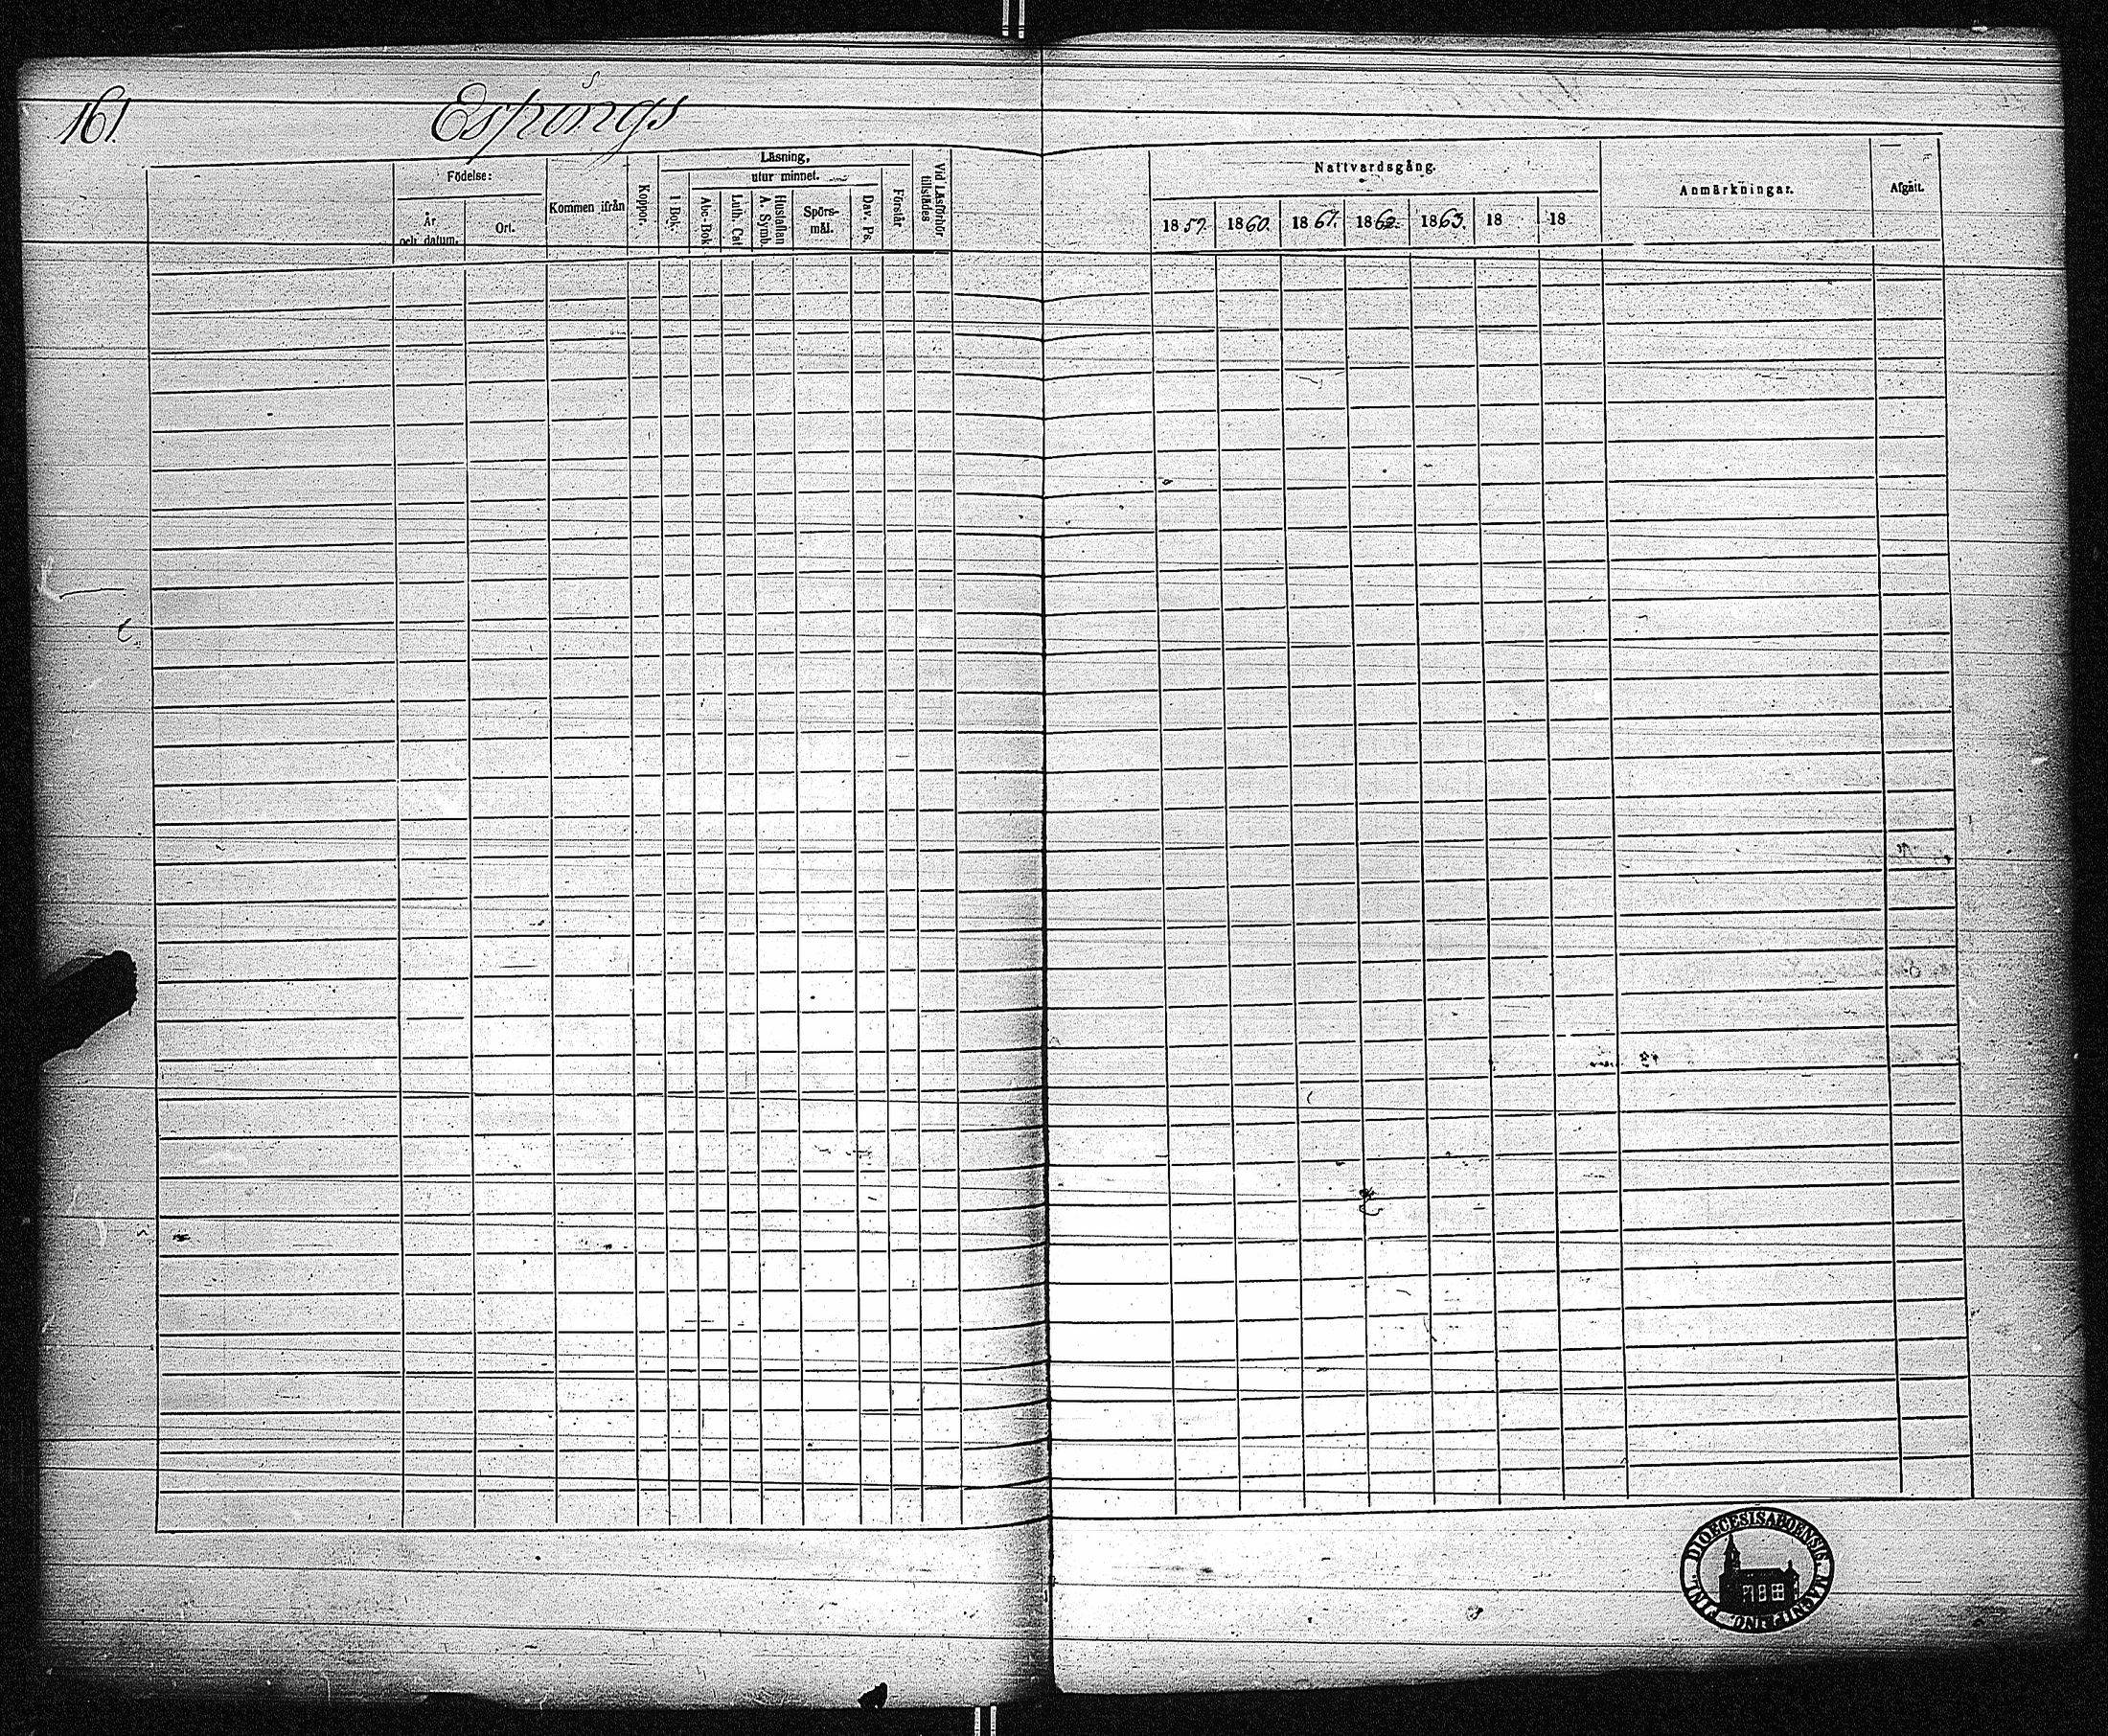 161.
Espings
Födelse:
År och datum.
Ort.
Kommen ifrån
Koppor.
Läsning,
I Bok.
utur minnet.
Abc-Bok
Luth. Cat
Hustaflan A. Symb.
Spörs-mål.
Dav. Ps.
Förstår
Vid Läsförhör tillstädes
Nattvardsgång.
1859.
1860.
1861.
1862.
1863.
18
18
Anmärkningar.
Afgått.
DIOECESIS ABOENSIS. MAGNI PRINC. FINL.